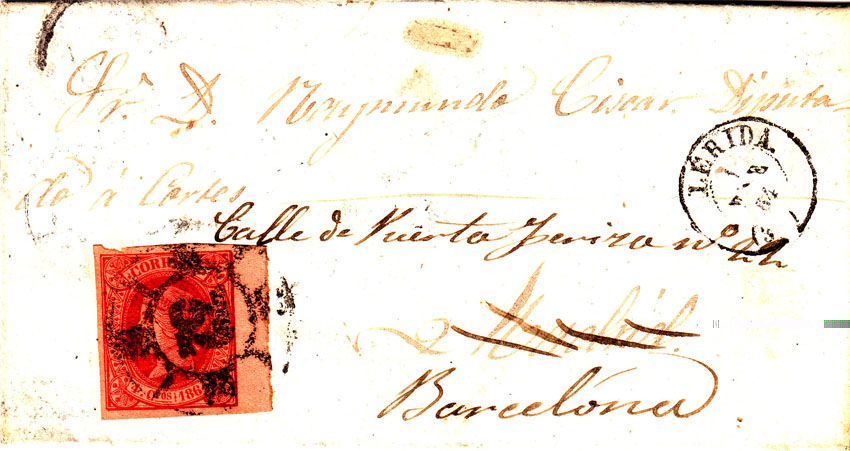 Sr. D. Raymundo Ciscar Diputa-
do á Cortes
Calle de Puerta Ferriza nº 24
Madrid.
Barcelóna
LÉRIDA.
CORREOS